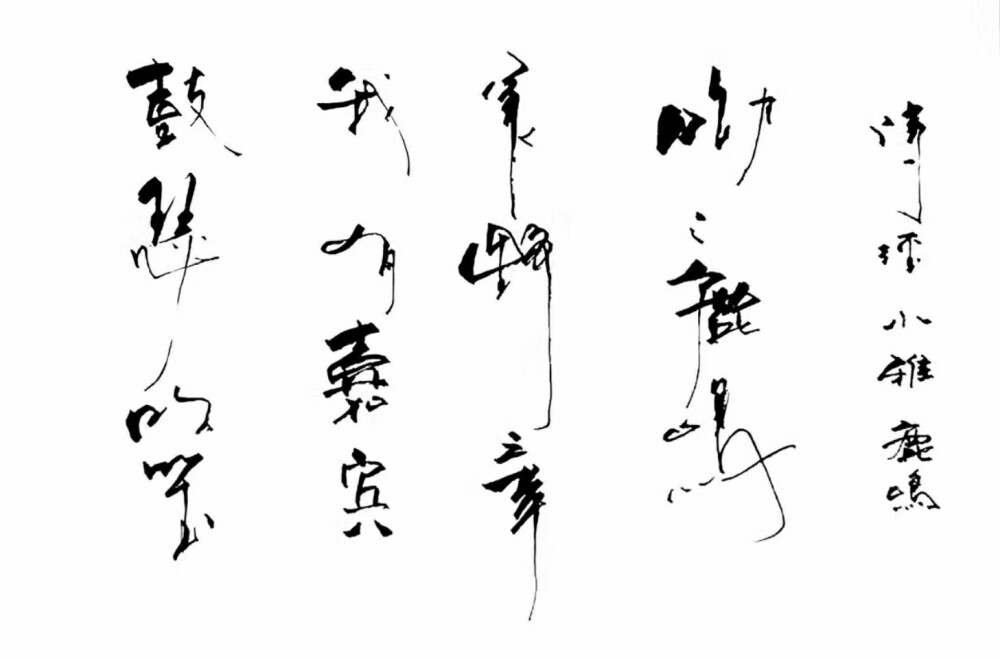 诗经小雅鹿鳴
呦々鹿鳴
食野之苹
我有嘉宾
鼓瑟吹笙